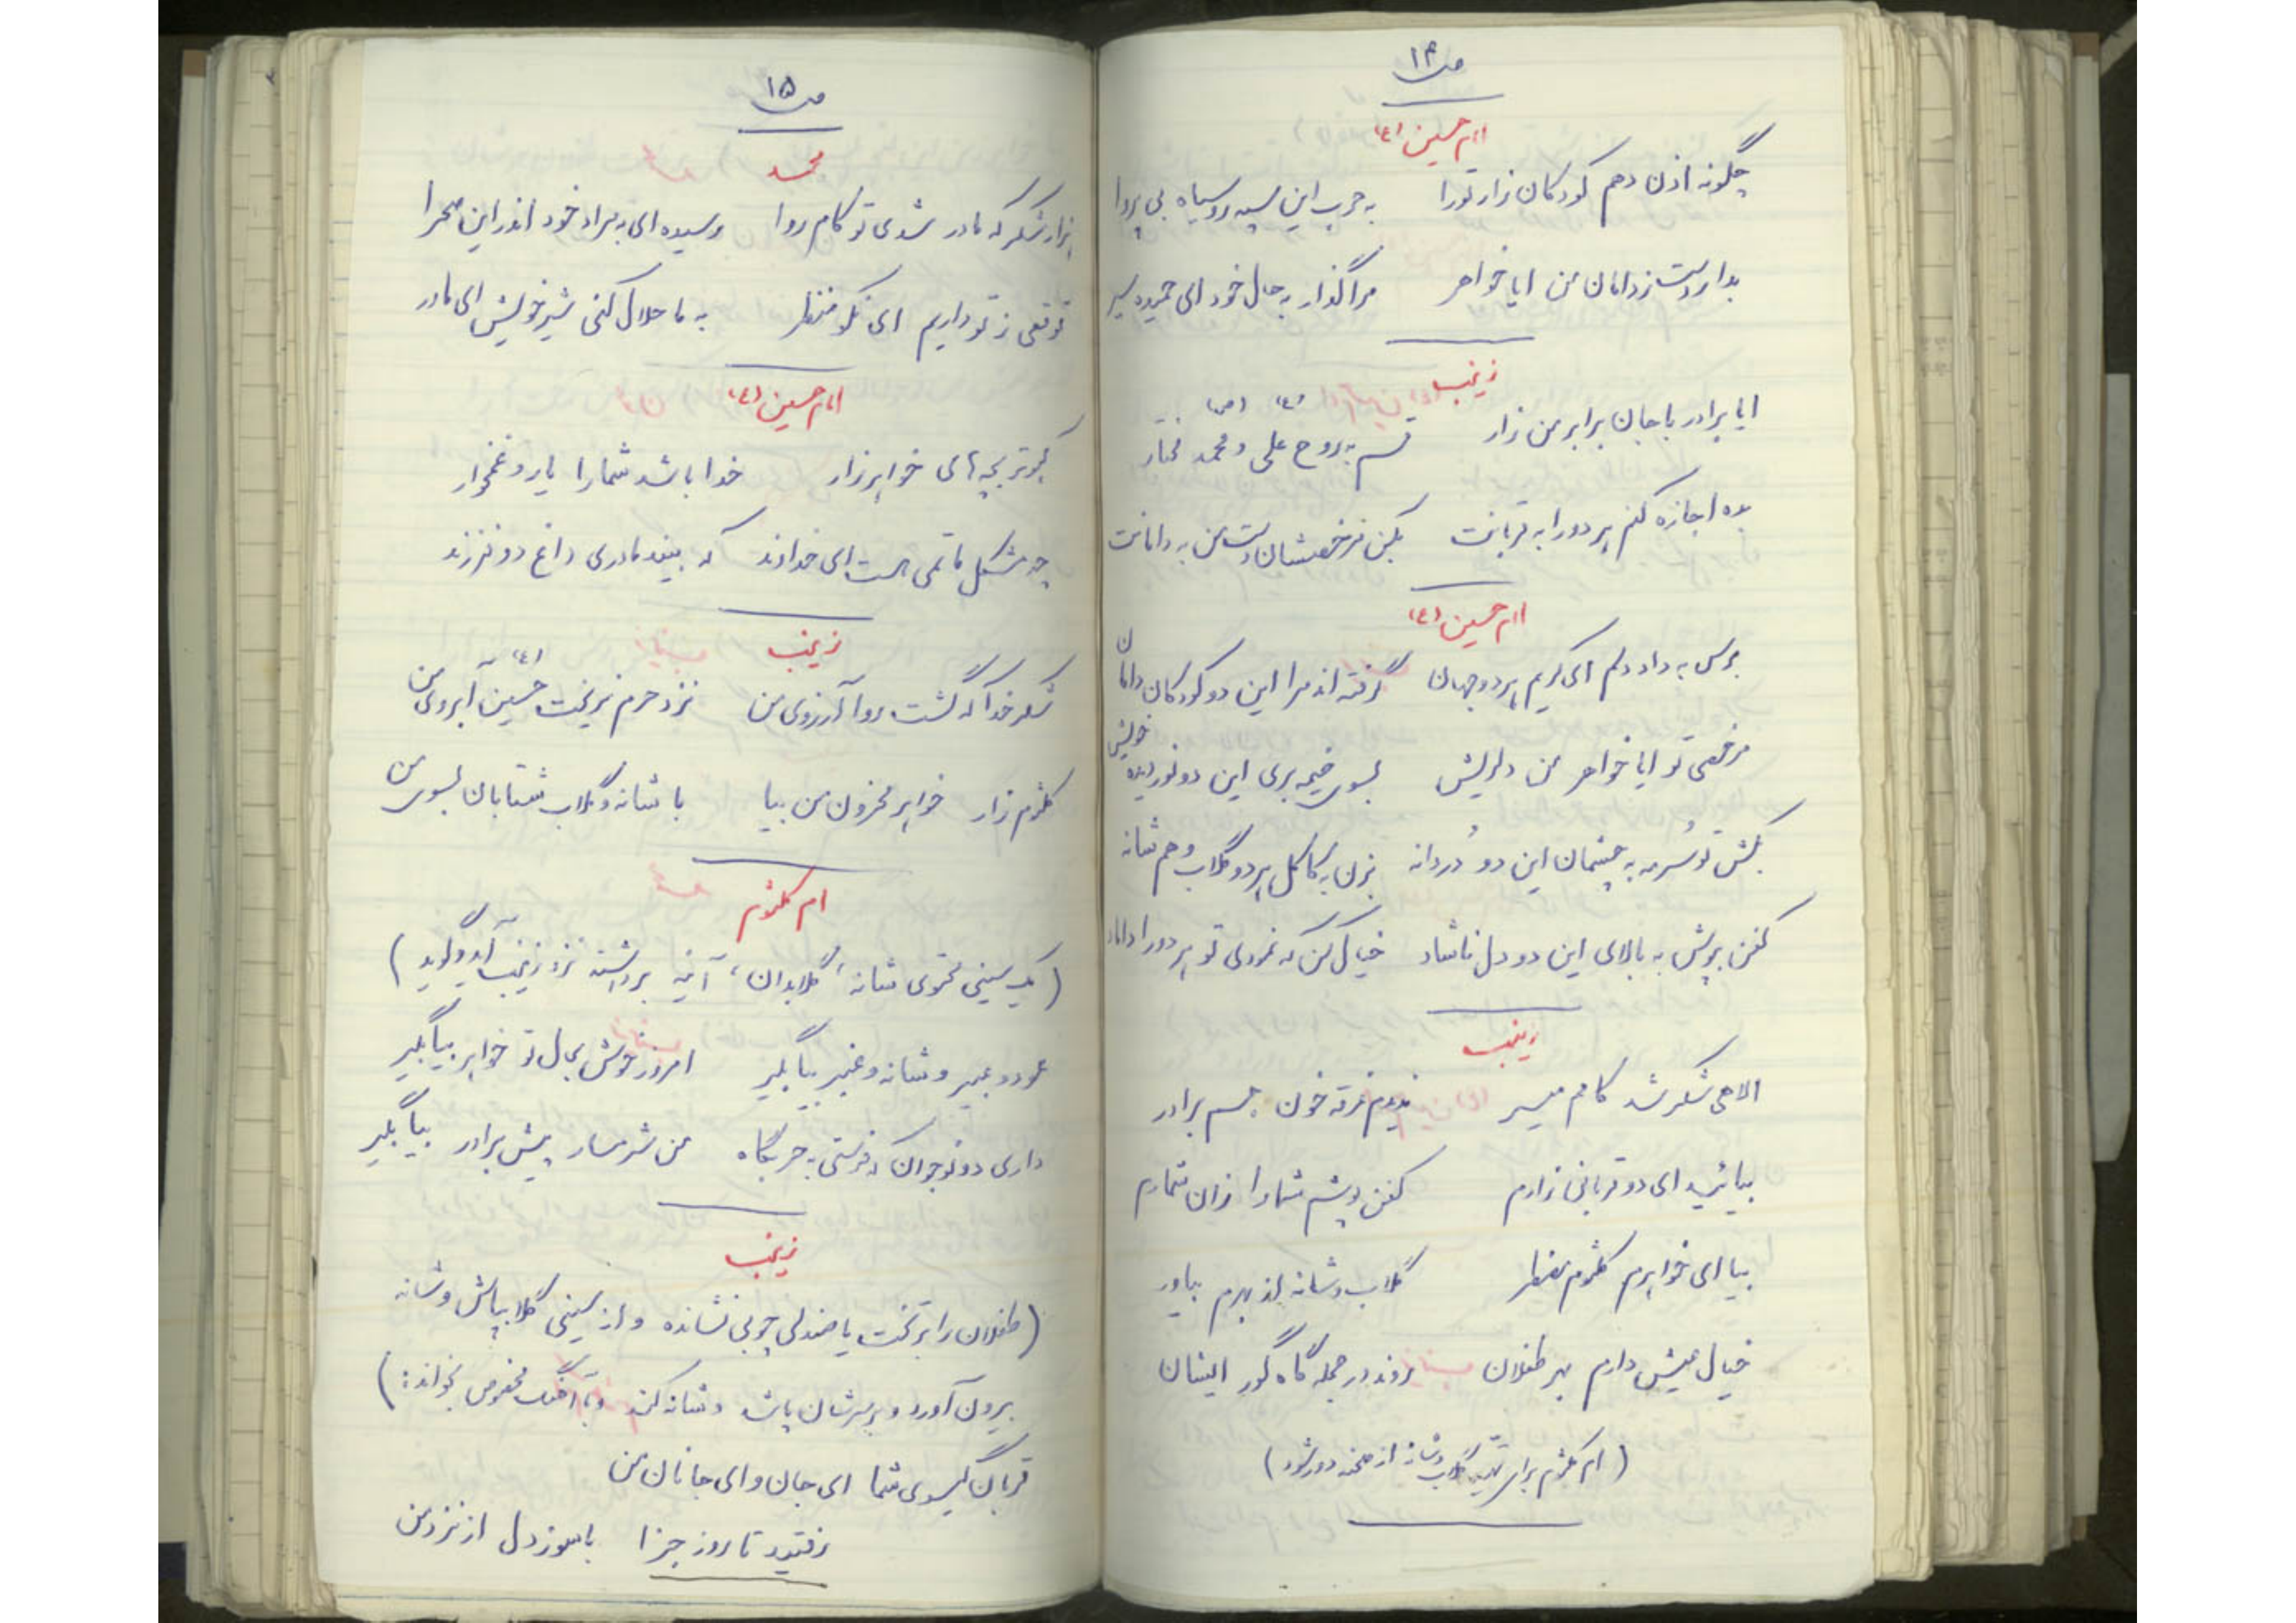 ص ۱۴
امام حسین (ع)
چگونه اذن دهم کودکان زار تو را به حرب این سپه روسیاه بی پروا
بدار دست ز دامان من ایا خواهر مرا گذار به حال خود ای حمیده سیر
زینب
ایا برادر با جان برابر من زار قسم به روح علی (ع) و محمد (ص) مختار
بده اجازه کنم هر دو را به قربانت بکن مرخصشان دست من به دامانت
امام حسین (ع)
برس به داد دلم ای کریم هر دو جهان گرفته اند مرا این دو کودکان دامان
مرخصی تو ایا خواهر من دلریش بسوی خیمه بری این دو نور دیده خویش
بکش تو سُرمه به چشمان این دو دُردانه بزن به کاکل هر دو گلاب و هم شانه
کفن بپوش به بالای این دو دل ناشاد خیال کن که نمودی تو هر دو را داماد
زینب
الاهی شکر شد کامم میسر ندیدم غرقه خون جسم برادر
بیائید ای دو قربانی زارم کفن پوشم شما را زان شمارم
بیا ای خواهرم کلثوم مضطر گلاب و شانه از بهرم بیاور
خیال عیش دارم بهر طفلان روند در حجله گاه گور ایشان
(ام کلثوم برای تهیه گلاب و شانه از صحنه دور شود)
ص ۱۵
محمد
هزار شکر که مادر شدی تو کام روا رسیده ای به مراد خود اندر این صحرا
توقعی ز تو داریم ای نکو منظر به ما حلال کنی شیر خویش ای مادر
امام حسین (ع)
کبوتر بچه های خواهر زار خدا باشد شما را یار و غمخوار
چه مشکل ماتمی هست ای خداوند که بیند مادری داغ دو فرزند
زینب
شکر خدا که گشت روا آرزوی من نزد حرم نریخت حسین (ع) آبروی من
کلثوم زار خواهر محزون من بیا با شانه و گلاب شتابان بسوی من
ام کلثوم
(یک سینی محتوی شانه، گلابدان، آینه برداشته نزد زینب آید و گوید)
عود و عبیر و شانه و عنبر بیا بگیر امروز خوش بحال تو خواهر بیا بگیر
داری دو نوجوان که فرستی به حربگاه من شرمسار پیش برادر بیا بگیر
زینب
(طفلان را بر تخت یا صندلی چوبی نشانده و از سینی گلابپاش و شانه
بیرون آورد و بر سرشان پاشد و شانه کند و با آهنگ مخصوص بخواند:)
قربان گیسوی شما ای جان و ای جانان من
رفتید تا روز جزا با سوز دل از نزد من